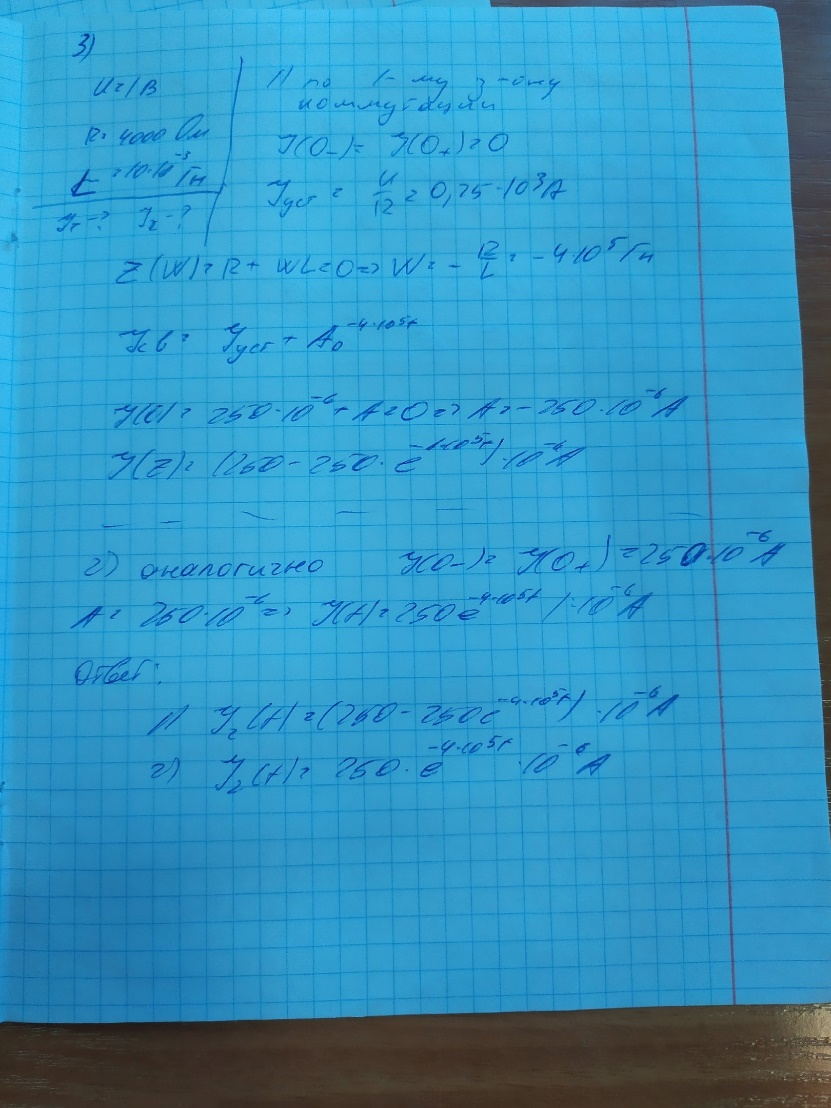 3)
U=1В
R=4000 Ом
L=10·10⁻³ Гн
J₁-? J₂-?
1) по 1-му з-ону
коммутации
J(0₋)= J(0₊)=0
Jуст = U/R = 0,25·10³А
Z(W)=R+WL=0=>W=-R/L=-4·10⁵Гн
Jсв= Jуст+A₀^-4·10⁵t
J(0)= 250·10⁻⁶+A=0=>A=-250·10⁻⁶А
J(t)=(250-250·e^-4·10⁵t)·10⁻⁶А
2) аналогично J(0₋)= J(0₊)=250·10⁻⁶А
A= 250·10⁻⁶=> J(t)=250e^-4·10⁵t)·10⁻⁶А
Ответ:
1) J₂(t)=(250-250e^-4·10⁵t)·10⁻⁶А
2) J₂(t)= 250·e^-4·10⁵t·10⁻⁶А